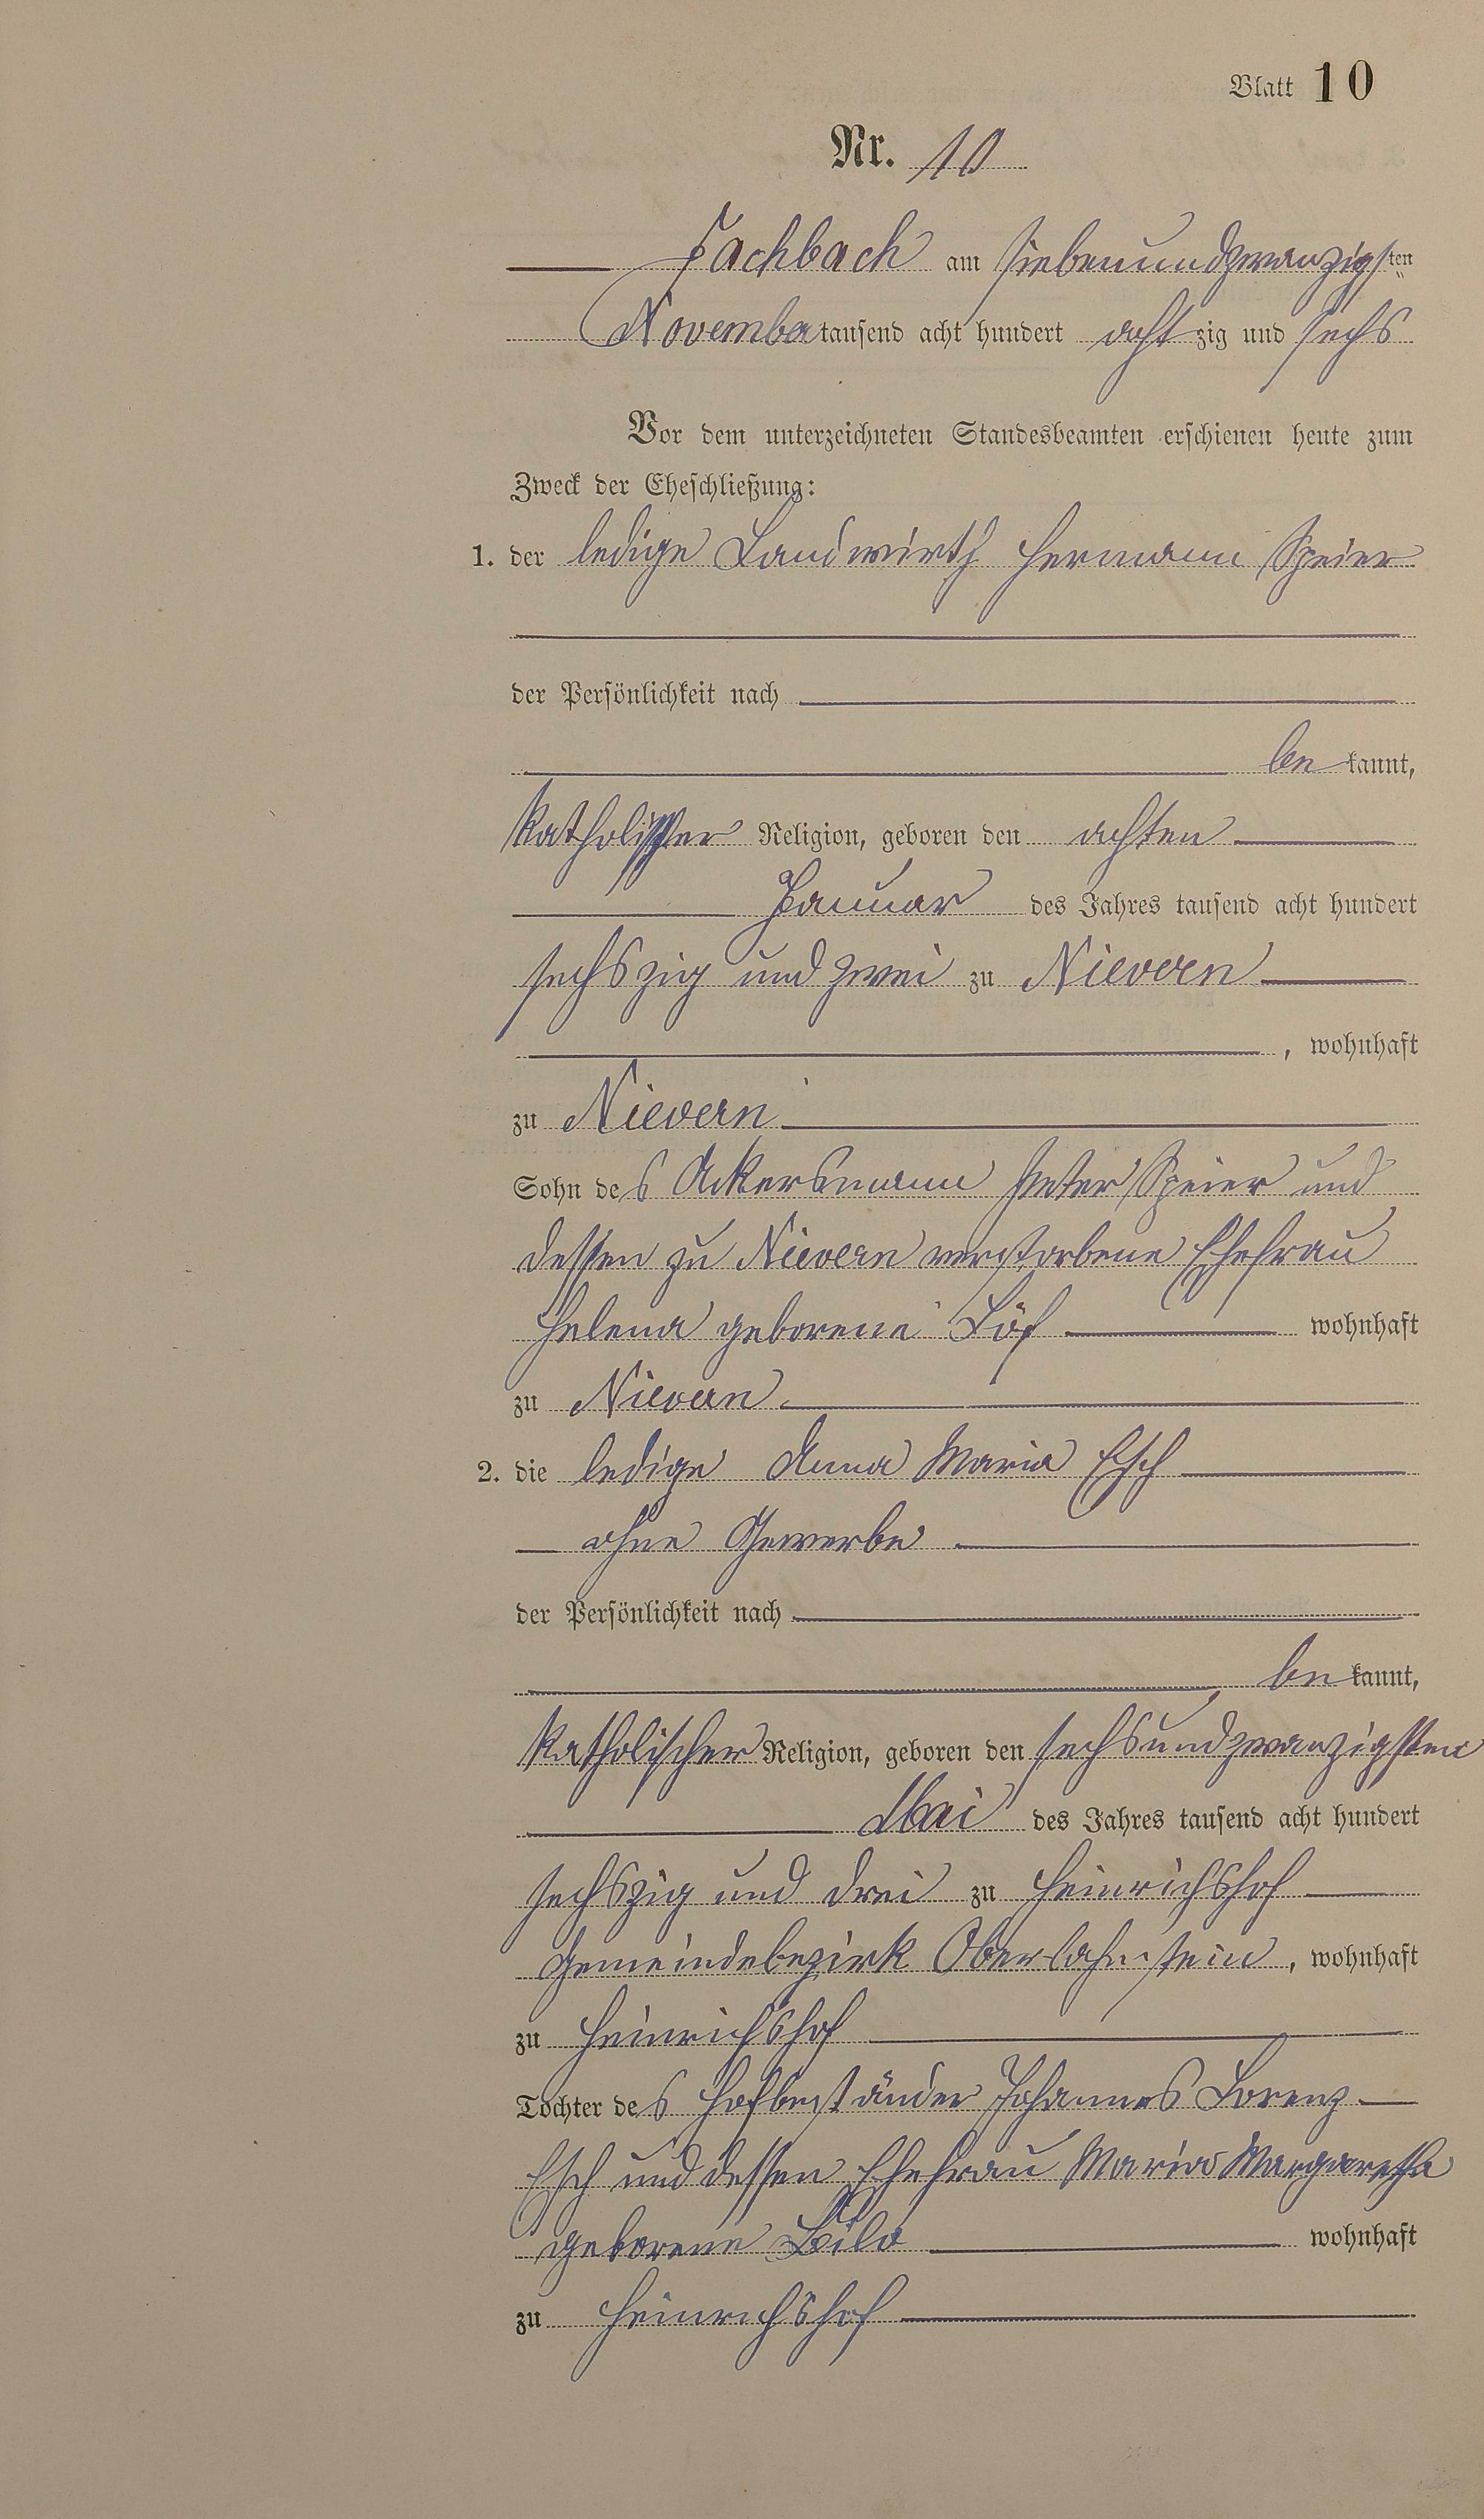 Blatt 10
Nr. 10
Fachbach am siebenundzwanzigsten
November tausend acht hundert achtzig und sechs
Vor dem unterzeichneten Standesbeamten erschienen heute zum
Zweck der Eheschließung:
1. der ledige Landwirth Hermann Speier
der Persönlichkeit nach
be kannt,
katholischer Religion, geboren den achten
Januar des Jahres tausend acht hundert
sechszig und zwei zu Nievern
, wohnhaft
zu Nievern
Sohn des Ackersmann Peter Speier und
dessen zu Nievern verstorbene Ehefrau
Helena geborene Löf wohnhaft
zu Nievern
2. die ledige Anna Maria Esch
ohne Gewerbe
der Persönlichkeit nach
be kannt,
katholischer Religion, geboren den sechsundzwanzigsten
Mai des Jahres tausend acht hundert
sechszig und drei zu Heinrichshof
Gemeindebezirk Oberlahnstein, wohnhaft
zu Heinrichshof
Tochter des Hofbeständer Johannes Lorenz
Esch und dessen Ehefrau Maria Margaretha
geborene wohnhaft
zu Heinrichshof